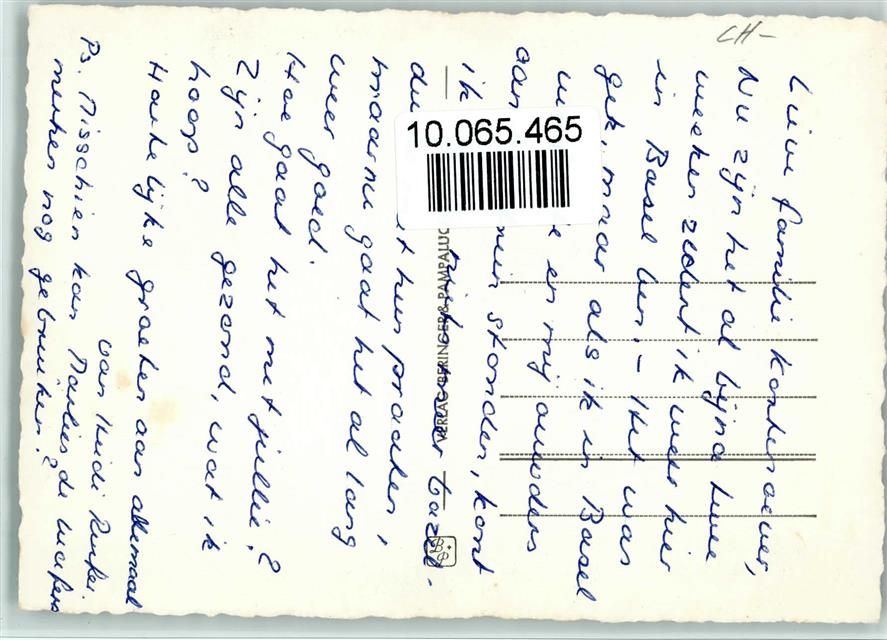 CH-
Lieve familie Kortenoever,
Nu zijn het al bijna twee
weeken zedent ik weer hier
in Basel ben. - Het was
gek, maar als ik in Basel
en mij ouwders
aan stonden, kont
ik niet meer
du het hun praaten,
maar nu gaat het al lang
weer goed.
Hoe gaat het met jullie?
Zijn alle gezond, wat ik
hoop?
Hartelijke groeten aan allemaal
van Heidi
Ps. Misschien kan Marlies de lucifers
merken nog gebruiken?
10.065.465
VERLAG BERINGER & PAMPALUC